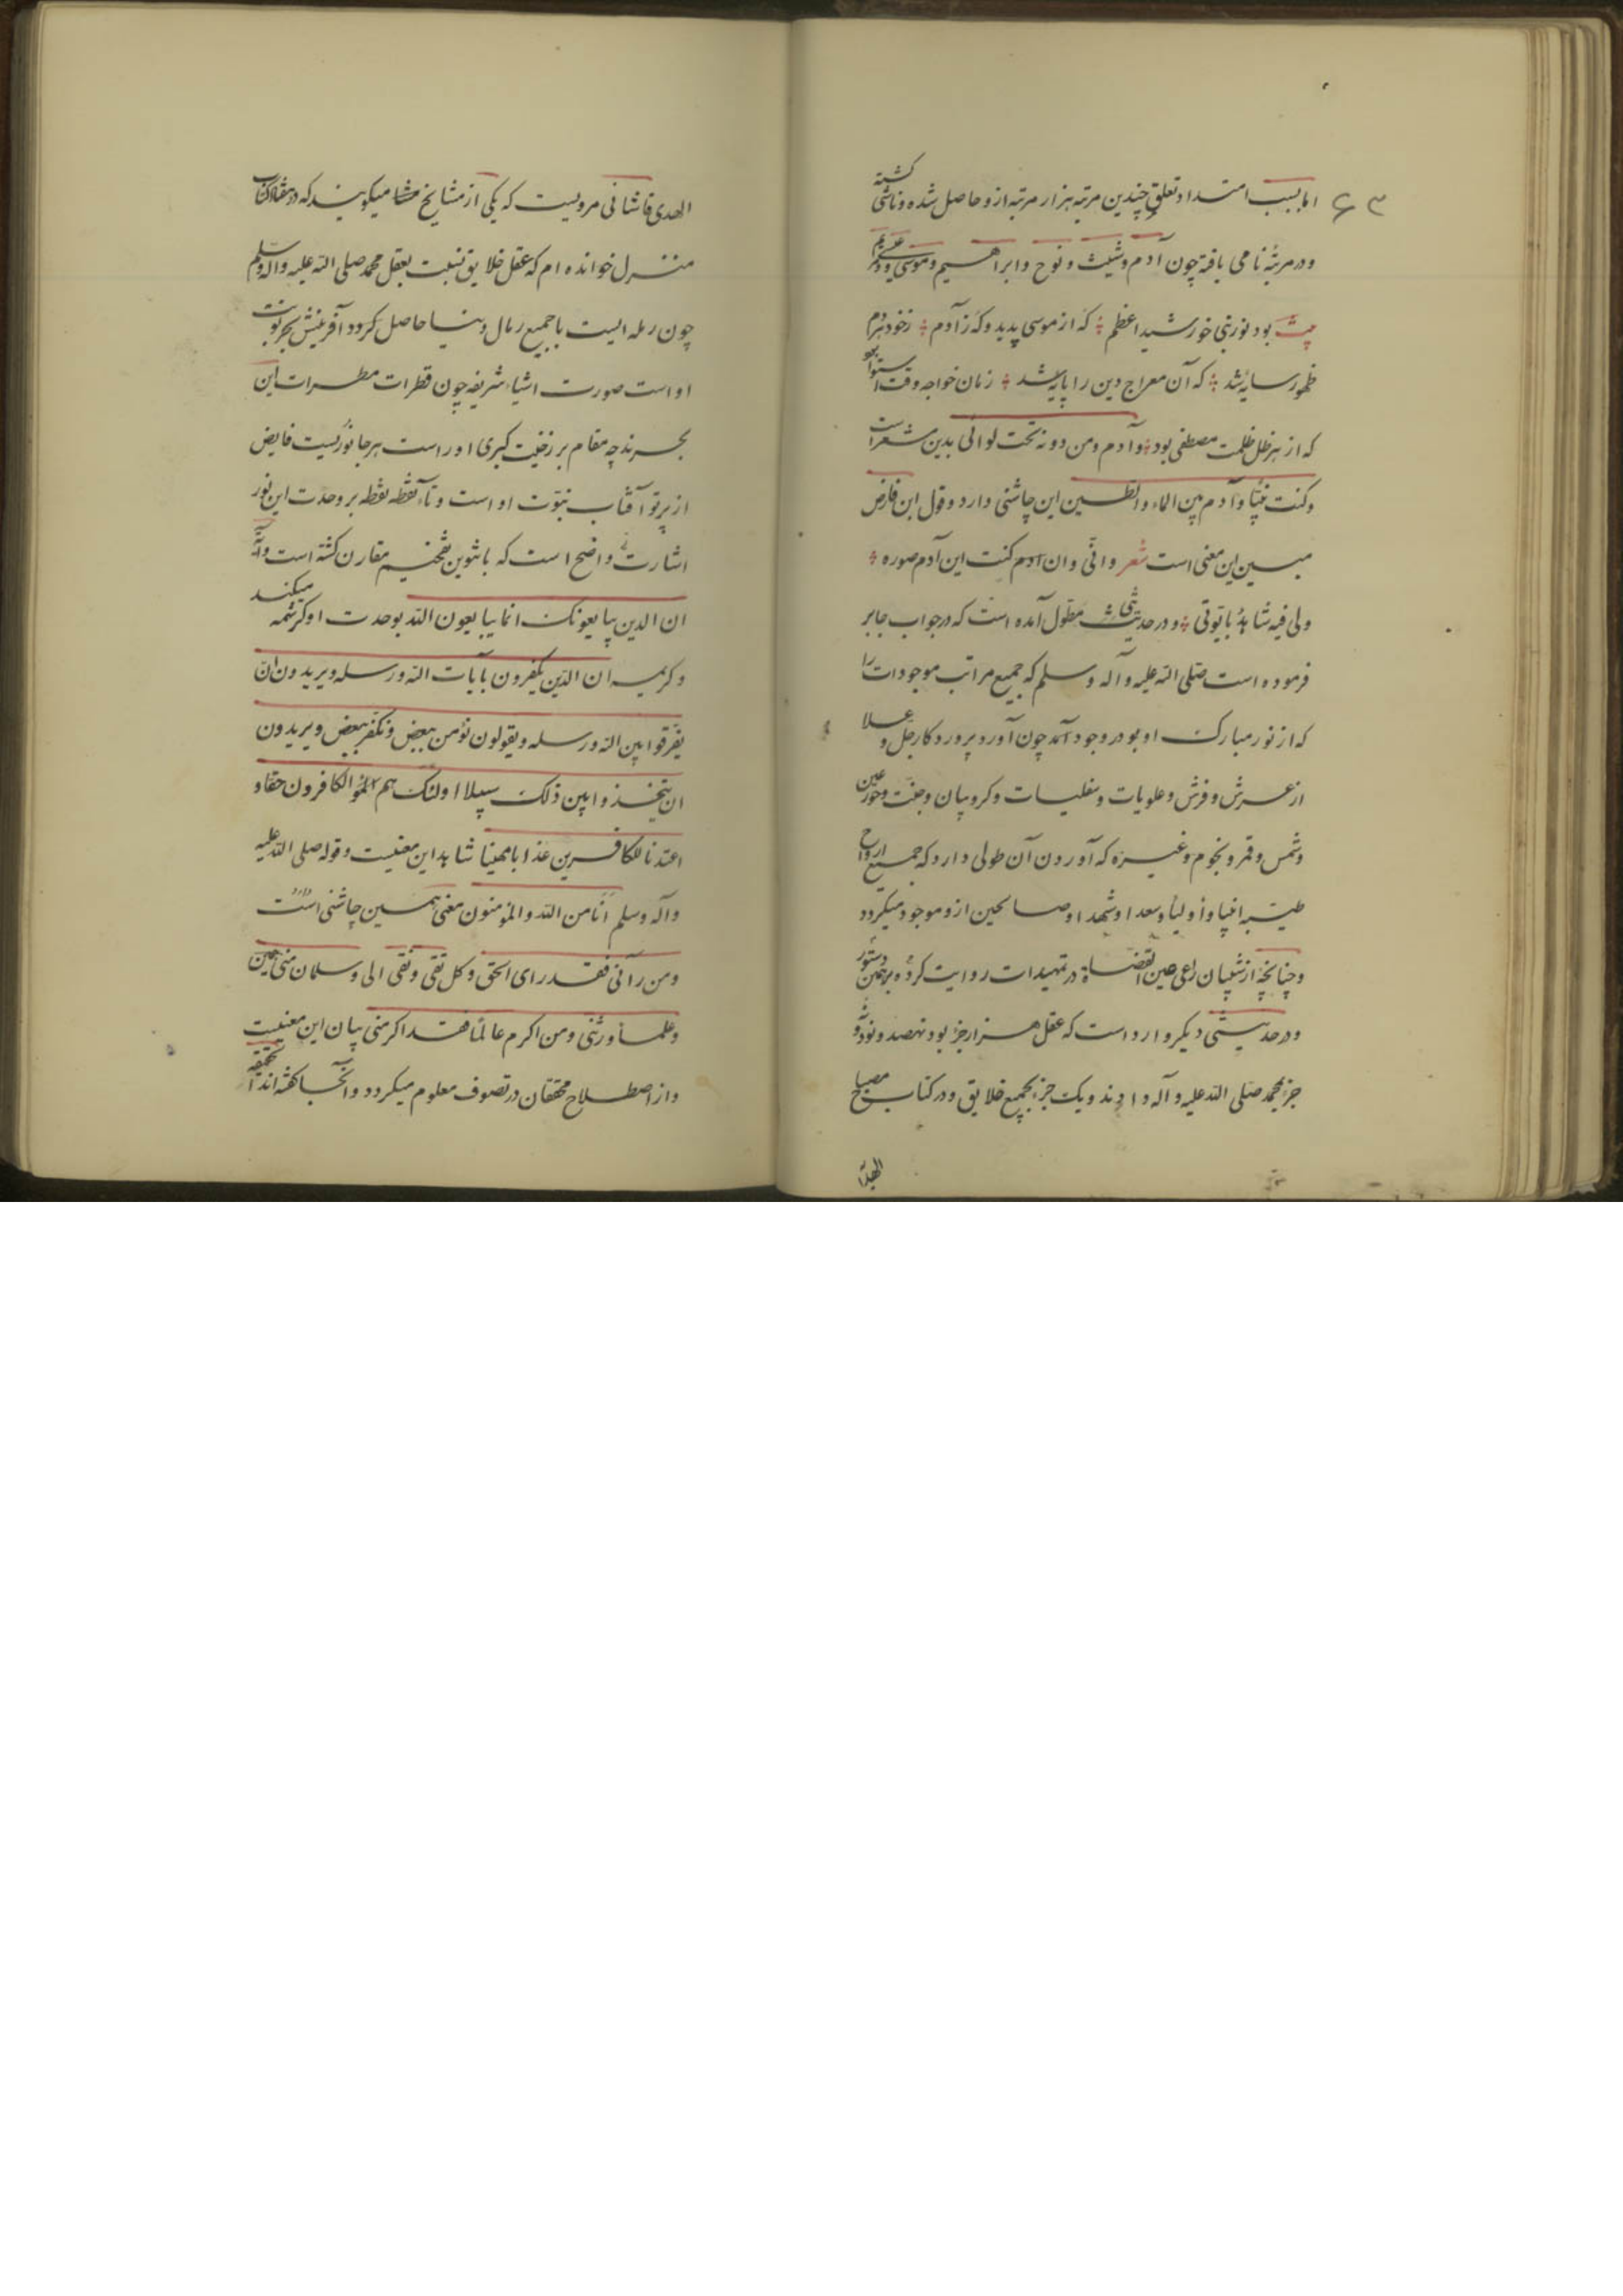 ۶۳
اما بسبب امتداد و تعلق چندین مرتبه هزار مرتبه ازو حاصل شده و ناشی کشته
و در مرتبهٔ نامی یافته چون آدم و شیث و نوح و ابراهیم و موسی و
بیت بود نور نبی خورشید اعظم که از موسی پدید و که ز آدم ز خود هر دم
ظهور سایهٔ شد که آن معراج دین را پایهٔ شد زمان خواجه وقت استوا بود
که از هر ظل ظلمت مصطفی بود و آدم و من دونه تحت لوائی بدین مشعر است
وکنت نبیا وآدم بین الماء والطین این چاشنی دارد و قول ابن فارض
مبین این معنی است شعر وانی وان آدم کنت ابن آدم صوره
ولی فیه شاهد بابوتی و در حدیثی مطول آمده است که در جواب جابر
فرموده است صلی الله علیه و آله و سلم که جمیع مراتب موجودات را
که از نور مبارک او بود در وجود آمد چون آورد پروردکار جل و علا
از عرش و فرش و علویات و سفلیات و کروبیان و جنت و حور عین
و شمس و قمر و نجوم و غیره که آوردن آن طولی دارد که جمیع ارواح
طیبه انبیا و اولیا و سعدا و شهدا و صالحین ازو موجود میکردد
و چنانچه از عین القضاة در تمهیدات روایت کرده
و در حدیثی دیکر وارد است که عقل هزار جزء بود نهصد و نود و نه
جزء بمحمد صلی الله علیه و آله دادند و یک جزء بجمیع خلایق و در کتاب مصباح
الهدی
الهدی قاشانی مرویست که یکی از مشایخ میکویند که در
منزل خوانده ام که عقل خلایق نسبت بعقل محمد صلی الله علیه و اله و سلم
چون رمله ایست با جمیع رمال دنیا حاصل کردد آفرینش بحر نبوت
او است صورت اشیاء شریفه چون قطرات مطرات این
بحرند چه مقام برزخیت کبری او راست هر جا نوریست فایض
از پرتو آفتاب نبوت او است و تاء نقطه نقطه بر وحدت این نور
اشارت واضح است که با تنوین تفخیم مقارن کشته است و آیه
ان الدین یبایعونک انما یبایعون الله بوحدت او کرشمه میکند
و کریمه ان الذین یکفرون بآیات الله ورسله ویریدون ان
یفرقوا بین الله ورسله ویقولون نؤمن ببعض ونکفر ببعض ویریدون
ان یتخذوا بین ذلک سبیلا اولئک هم الکافرون حقا و
اعتدنا للکافرین عذابا مهینا شاهد این معنیست و قوله صلی الله علیه
وآله وسلم انا من الله والمؤمنون معنی همین چاشنی است
ومن رآنی فقد رای الحق وکل تقی ونقی الی وسلمان منی
وعلماء ورثتی ومن اکرم عالما فقد اکرمنی بیان این معنیست
و از اصطلاح محققان در تصوف معلوم میکردد و آنجا کفته اند